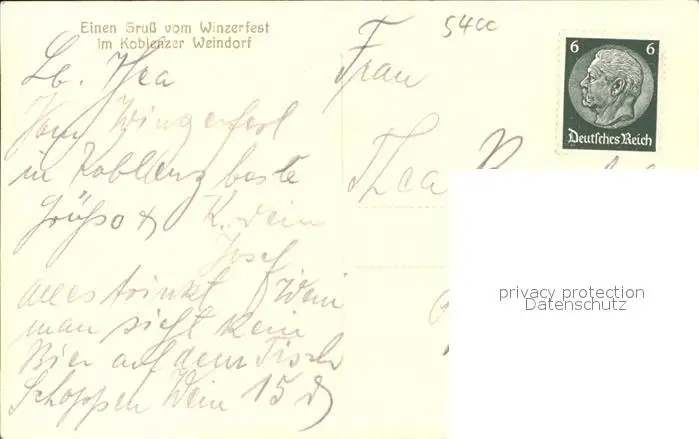 Einen Gruß vom Winzerfest
im Koblenzer Weindorf
Lb. Thea
Vom Winzerfest
in Koblenz beste
Grüße & K. dein
Josef
alles trinkt Wein
man sieht kein
Bier auf dem Tisch
Schoppen Wein 15 d
54cc
Frau
Thea
6 6
Deutsches Reich
privacy protection
Datenschutz